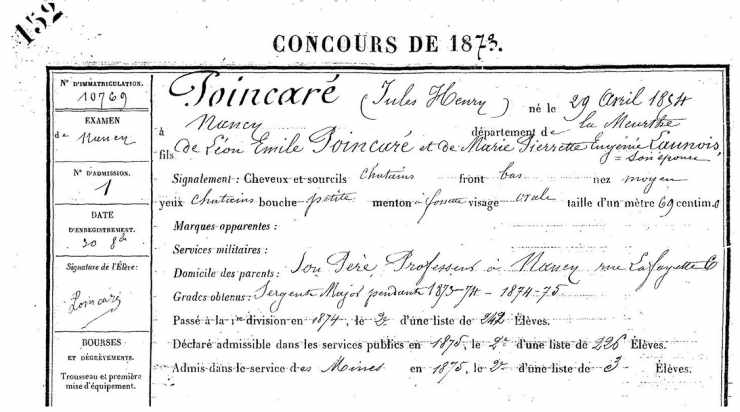 152
CONCOURS DE 1873.
N° D'IMMATRICULATION.
10769
EXAMEN
de Nancy
N° D'ADMISSION.
1
DATE
D'ENREGISTREMENT.
30 8bre
Signature de l'Élève:
Poincaré
BOURSES
ET DÉGRÈVEMENTS.
Trousseau et première
mise d'équipement.
Poincaré (Jules Henry) né le 29 Avril 1854
à Nancy département de la Meurthe
fils de Léon Emile Poincaré et de Marie Pierrette Eugénie Launois,
= son épouse
Signalement: Cheveux et sourcils chatains front bas nez moyen
yeux chatains bouche petite menton à fossette visage ovale taille d'un mètre 69 centim.
Marques apparentes:
Services militaires:
Domicile des parents: Son Père, Professeur à Nancy rue Lafayette
Grades obtenus: Sergent Major pendant 1873-74 - 1874-75
Passé à la 1re division en 1874, le 2e d'une liste de 242 Élèves.
Déclaré admissible dans les services publics en 1875, le 2e d'une liste de 226 Élèves.
Admis dans le service des Mines en 1875, le 2e d'une liste de 3 Élèves.